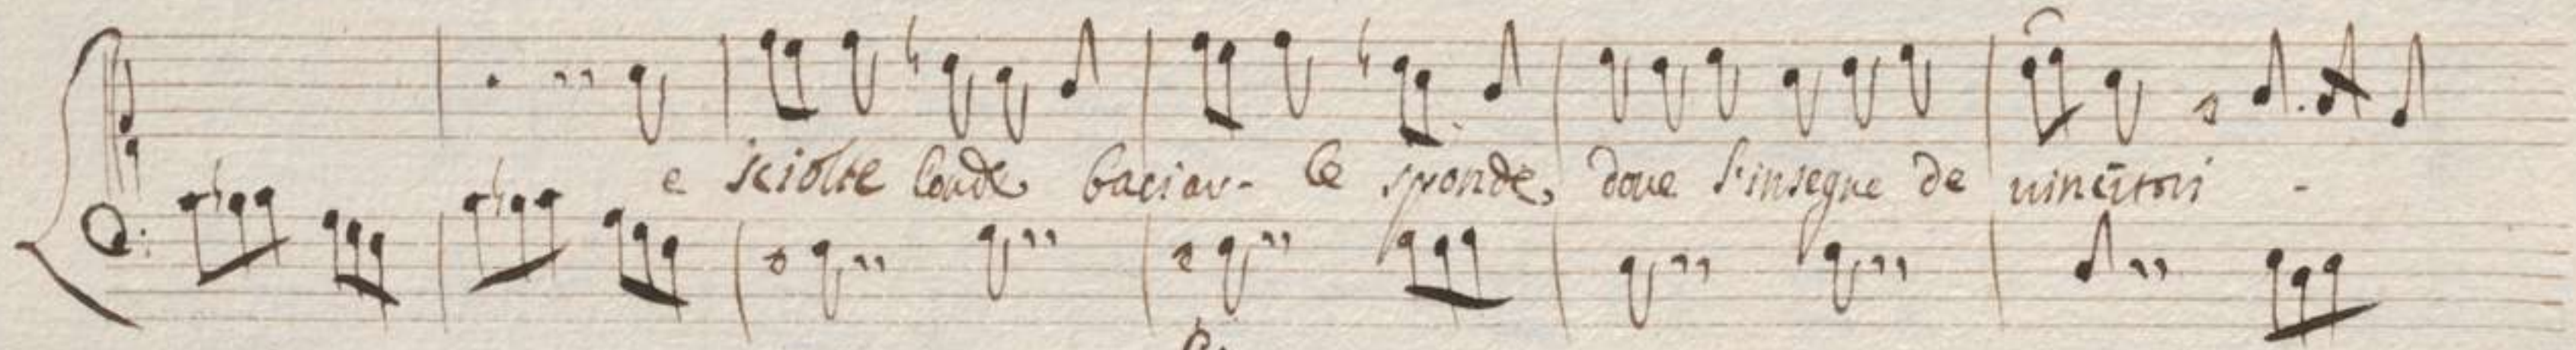 e sciolte londe baciav- le sponde, dove l'insegne de vincitori -